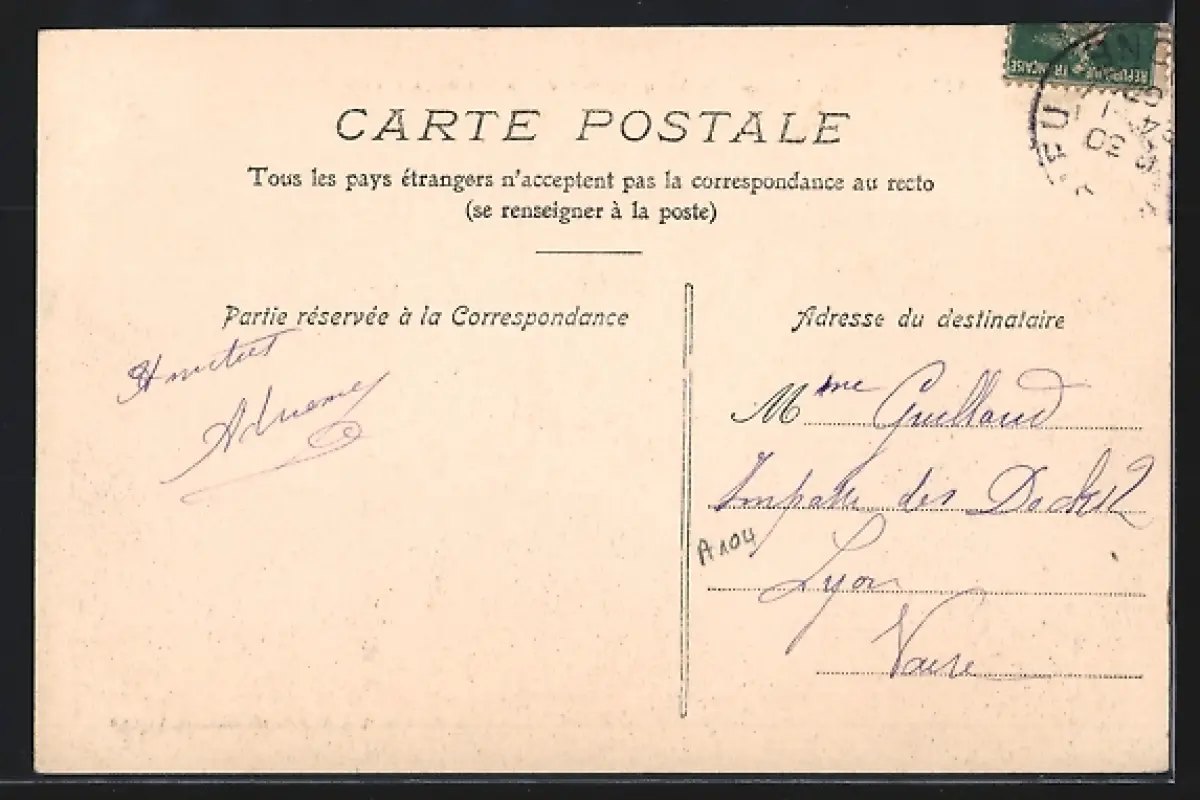 RÉPUBLIQUE FRANÇAISE
CARTE POSTALE
Tous les pays étrangers n'acceptent pas la correspondance au recto
(se renseigner à la poste)
Partie réservée à la Correspondance
Amitiés
Adresse du destinataire
Mme Guilland
Impasse des Docks 2
A104
Lyon
Vaise